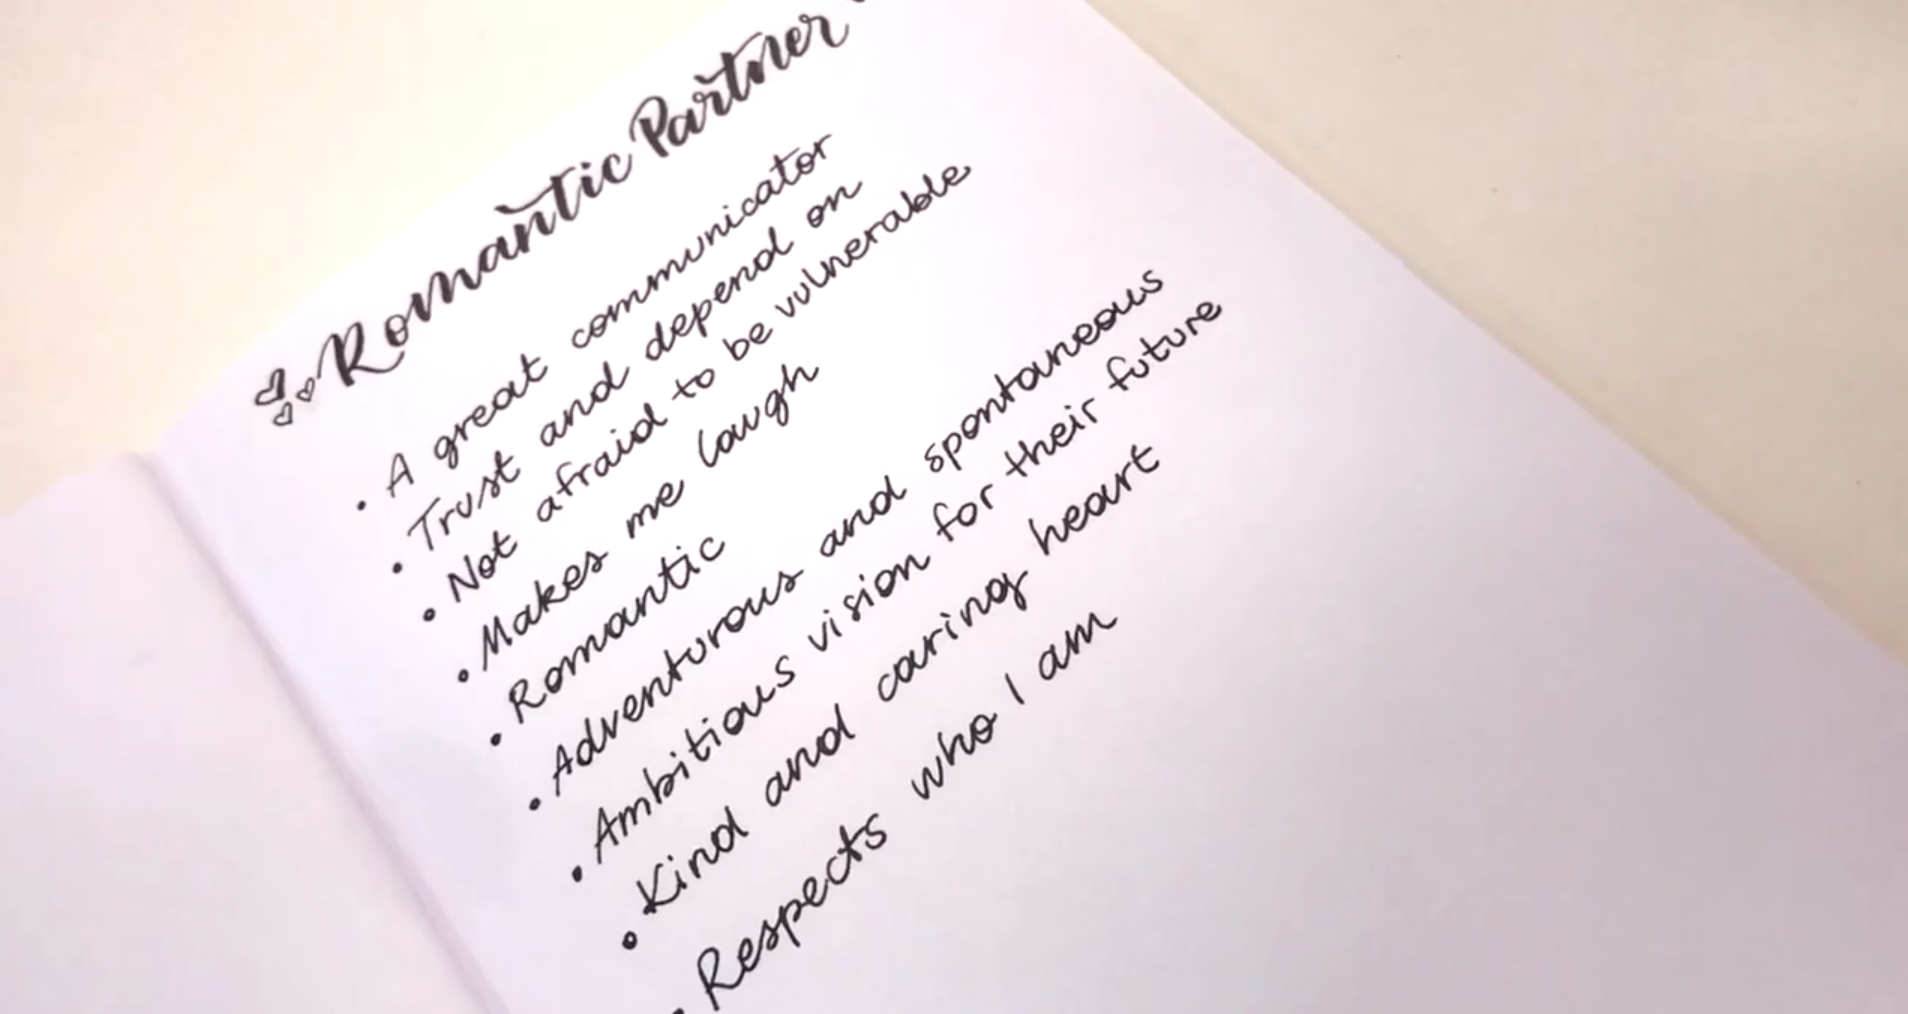 Romantic Partner
• A great communicator
• Trust and depend on
• Not afraid to be vulnerable
• Makes me laugh
• Romantic
• Adventurous and spontaneous
• Ambitious vision for their future
• Kind and caring heart
• Respects who I am